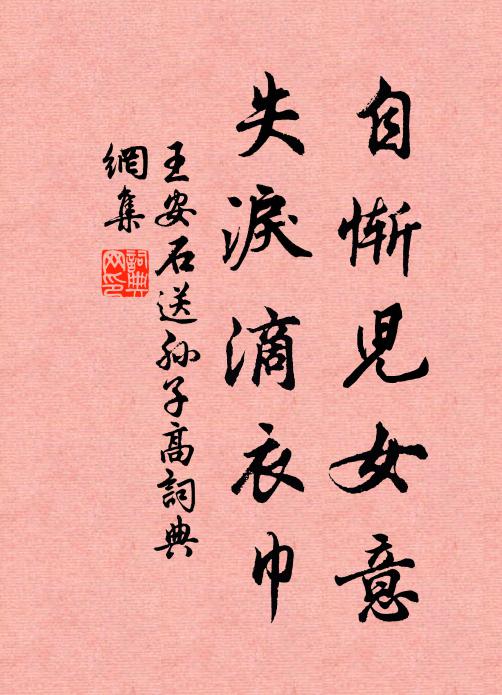 自慚児女意
失淚滴衣巾
王安石送孫子高詞典
網集
詞典
网印